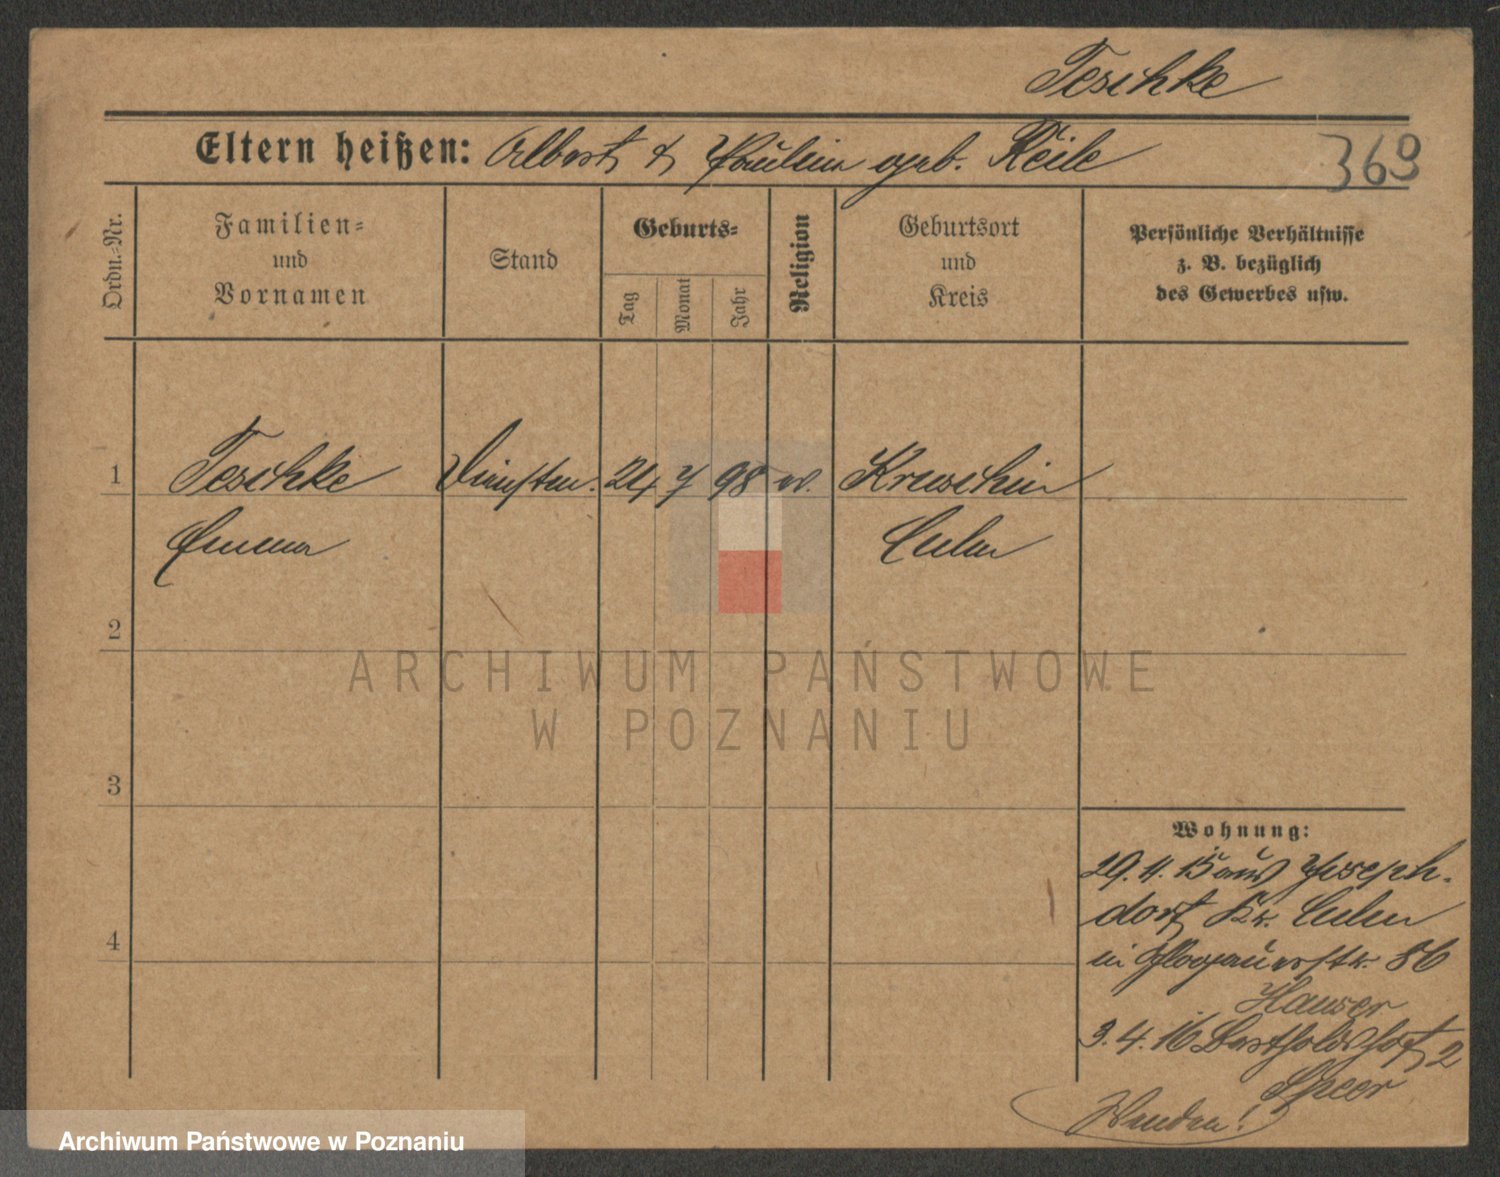 Teschke
Eltern heißen: Albert & Paulin geb. Reile
369
Ordn.-Nr.
Familien-
und
Vornamen
Stand
Geburts-
Tag
Monat
Jahr
Religion
Geburtsort
und
Kreis
Persönliche Verhältnisse
z. B. bezüglich
des Gewerbes usw.
1
Teschke
Dienstm.
24
7
98
ev.
Kruschin
Emma
Culm
2
ARCHIWUM PAŃSTWOWE
W POZNANIU
3
4
Wohnung:
29. 11. 15 aus Joseph-
dorf Kr. Culm
in Glogauerstr. 86
Hauser
3. 4. 16 Bartholdshof 2
Speer
Wenden!
Archiwum Państwowe w Poznaniu